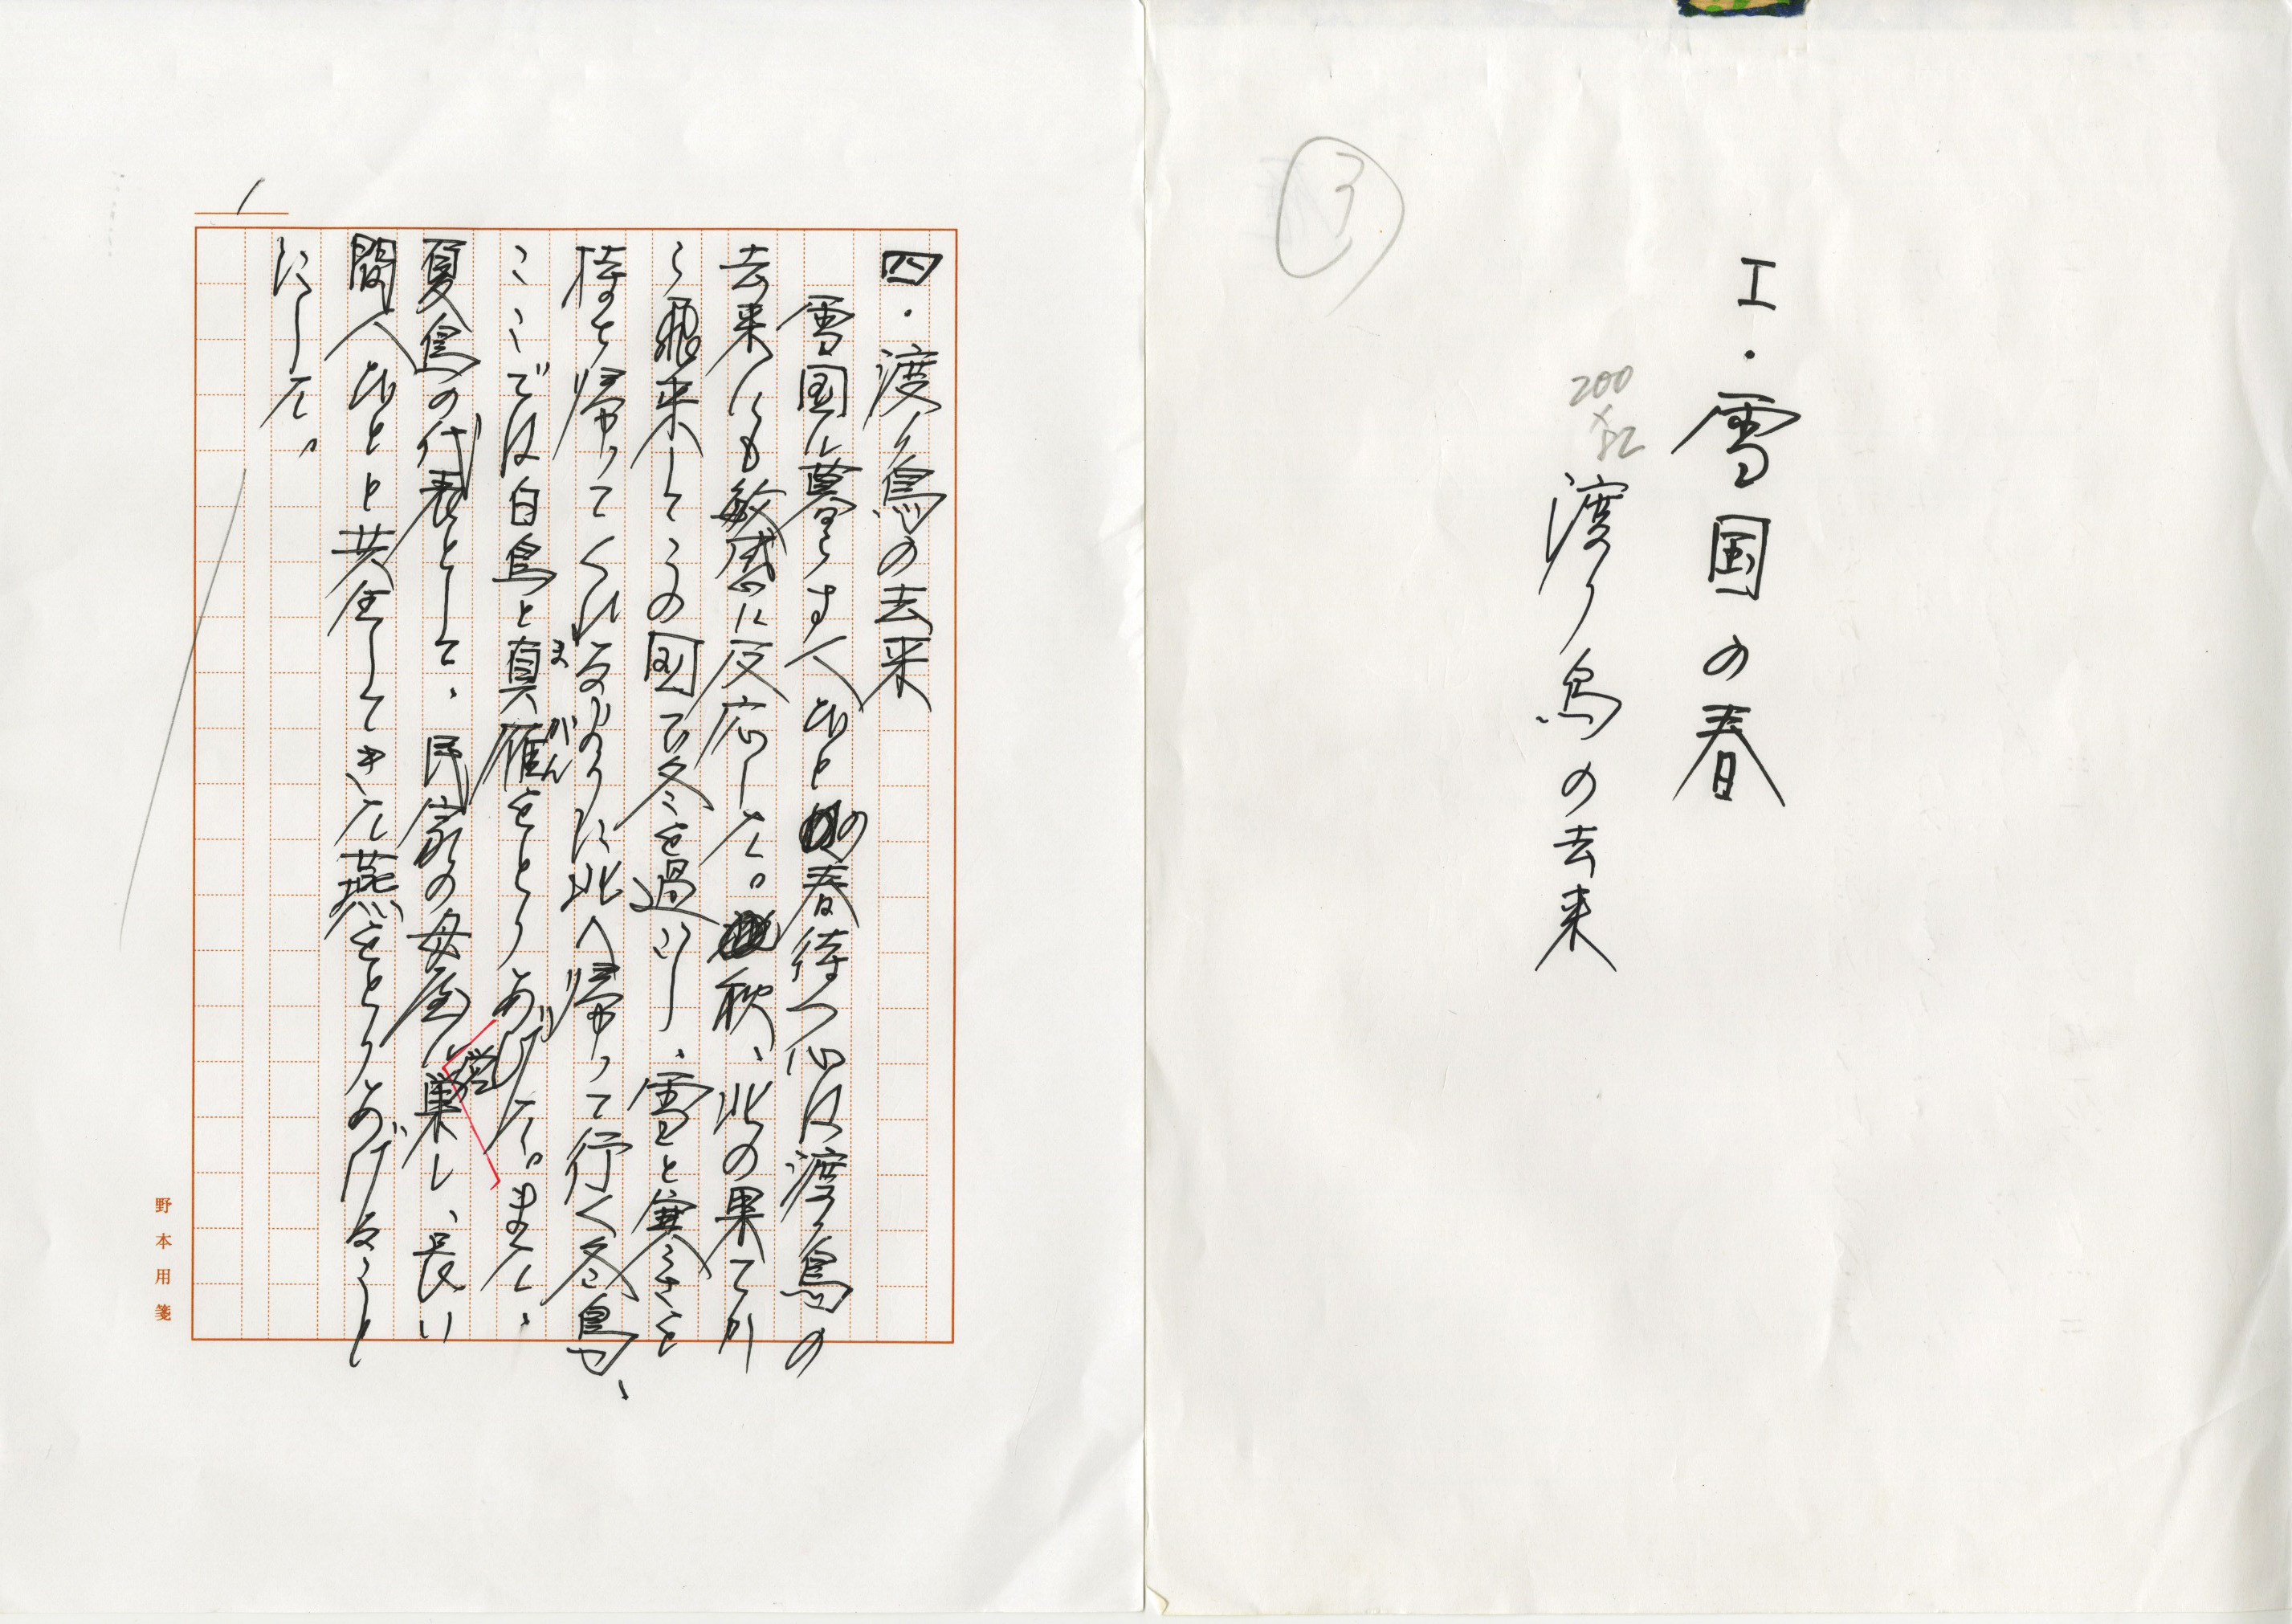 ③
エ・雪国の春
200
渡り鳥の去来
1
四・渡り鳥の去来
雪国に暮らす人びとの春待つ心は渡り鳥の
去来にも敏感に反応した。秋、北の果てか
ら飛来してこの国で冬を過ごし、雪と寒さを
待ち帰ってくれるように北へ帰って行く冬鳥、
ここでは白鳥と真雁をとりあげた。また、
まがん
夏鳥の代表として、民家の母屋に営巣し、長い
間人びとと共生してきた燕をとりあげること
にした。
野本用箋